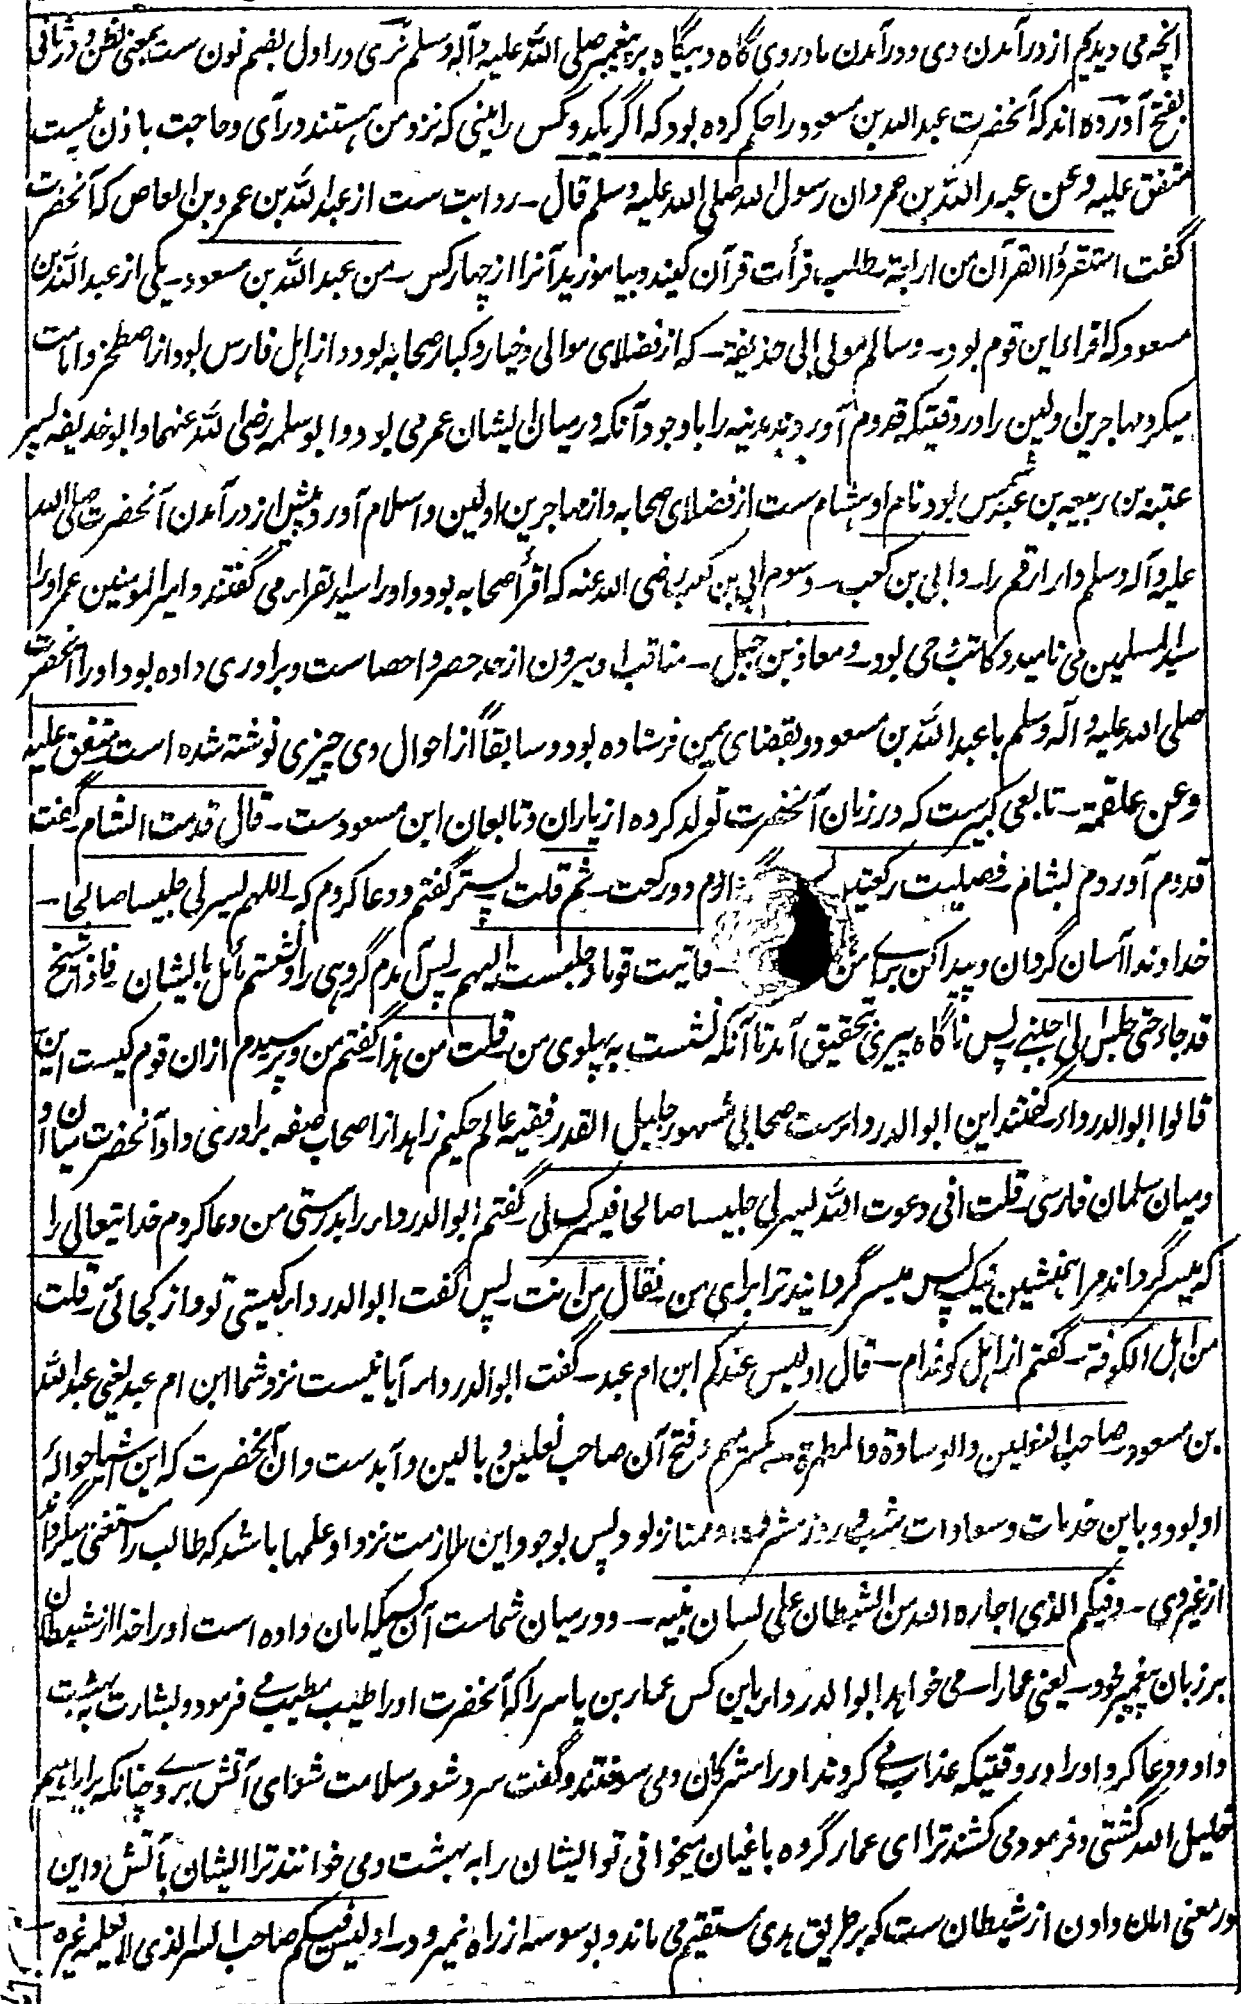 انچه می دیدیم از درآمدن وی و درآمدن مادر وی گاه و بیگاه بر پیغمبر صلی الله علیه و آله وسلم نری در اول بضم نون ست بمعنی نظن و در ثانی
بفتح آورده اند که آنحضرت عبدالله بن مسعود را حکم کرده بود که اگر یکدو کس را بینی که نزد من هستند در آی و حاجت باذن نیست
متفق علیه وعن عبد الله بن عمرو ان رسول الله صلی الله علیه وسلم قال ـ روایت ست از عبد الله بن عمرو بن العاص که آنحضرت
گفت استقرؤا القرآن من اربعة ـ طلب قرأت قرآن کنید و بیاموزید آنرا از چهار کس ـ من عبد الله بن مسعود ـ یکی از عبد الله بن
مسعود که اقراء این قوم بود ـ وسالم مولی ابی حذیفة ـ که از فضلای موالی و خیار و کبار صحابه بود و از اهل فارس بود از اصطخر و امامت
میکرد مهاجرین اولین را در وقتیکه قدوم آوردند مدینه را با وجود آنکه در میان ایشان عمر می بود و ابو سلمه رضی الله عنهما و ابو حذیفه پسر
عتبة بن ربیعه بن عبد شمس بود نام او هشام ست از فضلای صحابه و از مهاجرین اولین و اسلام آورد پیش از درآمدن آنحضرت صلی الله
علیه و آله وسلم دار ارقم را ـ وابی بن کعب ـ وسوم ابی بن کعب رضی الله عنه که اقرأ صحابه بود و او را سید القراء می گفتند و امیر المومنین عمر او را
سید المسلمین می نامید و کاتب وحی بود ـ ومعاذ بن جبل ـ مناقب او بیرون از حد حصر و احصاست و برادری داده بود او را آنحضرت
صلی الله علیه و آله وسلم با عبد الله بن مسعود و بقضای یمن فرستاده بود و سابقاً از احوال وی چیزی نوشته شده است متفق علیه
وعن علقمة ـ تابعی کبیرست که در زمان آنحضرت تولد کرده از یاران و تابعان ابن مسعودست ـ قال قدمت الشام ـ گفت
قدوم آوردم بشام ـ فصلیت رکعتین پس گزاردم دو رکعت ـ ثم قلت پستر گفتم و دعا کردم که ـ اللهم یسر لی جلیسا صالحا ـ
خداوندا آسان گردان و پیدا کن برای من ـ فاتیت قوما فجلست الیهم ـ پس آمدم گروهی را و نشستم مائل بایشان ـ فاذا شیخ
قد جاء حتی جلس الی جنبی ـ پس ناگاه پیری بتحقیق آمد تا آنکه نشست به پهلوی من ـ قلت من هذا گفتم من و پرسیدم ازان قوم کیست این
قالوا ابو الدرداء ـ گفتند این ابو الدرداءست صحابی مشهور جلیل القدر فقیه عالم حکیم زاهد از اصحاب صفه برادری داد آنحضرت میان او
و میان سلمان فارسی ـ قلت انی دعوت الله ییسر لی جلیسا صالحا فیسرک لی ـ گفتم ابو الدرداء را بدرستی من دعا کردم خدایتعالی را
که میسر گرداند مرا همنشین نیک پس میسر گردانید ترا برای من ـ فقال من انت ـ پس گفت ابو الدرداء کیستی تو و از کجائی ـ قلت
من اهل الکوفة ـ گفتم از اهل کوفه ام ـ قال او لیس عندکم ابن ام عبد ـ گفت ابو الدرداء آیا نیست نزد شما ابن ام عبد یعنی عبد الله
بن مسعود ـ صاحب النعلین والوسادة والمطهرة ـ بکسر میم و فتح آن صاحب نعلین و بالین و آبدست دان آنحضرت که این اشیا حواله
او بود و باین خدمات و سعادات شب و روز مشرف و ممتاز بود پس بوجود این ملازمت نزد او علمها باشد که طالب را مستغنی میگرداند
از غیر وی ـ وفیکم الذی اجاره الله من الشیطان علی لسان نبیه ـ و در میان شماست آن کسیکه امان داده است او را خدا از شیطان
بر زبان پیغمبر خود ـ یعنی عمارا ـ می خواهد ابو الدرداء باین کس عمار بن یاسر را که آنحضرت او را طیب مطیب می فرمود و بشارت به بهشت
داد و دعا کرد او را در وقتیکه عذاب می کردند او را مشرکان و می سوختند و گفت سرد شو و سلامت شو ای آتش بر وی چنانکه بر ابراهیم
خلیل الله گشتی و فرمود می کشند ترا ای عمار گروه باغیان میخوانی تو ایشان را به بهشت و می خوانند ترا ایشان بآتش و این
در معنی امان دادن از شیطان ست که بر طریق هدی مستقیم می ماند و بوسوسه از راه نمیرود ـ او لیس فیکم صاحب السر الذی لا یعلمه غیره ـ